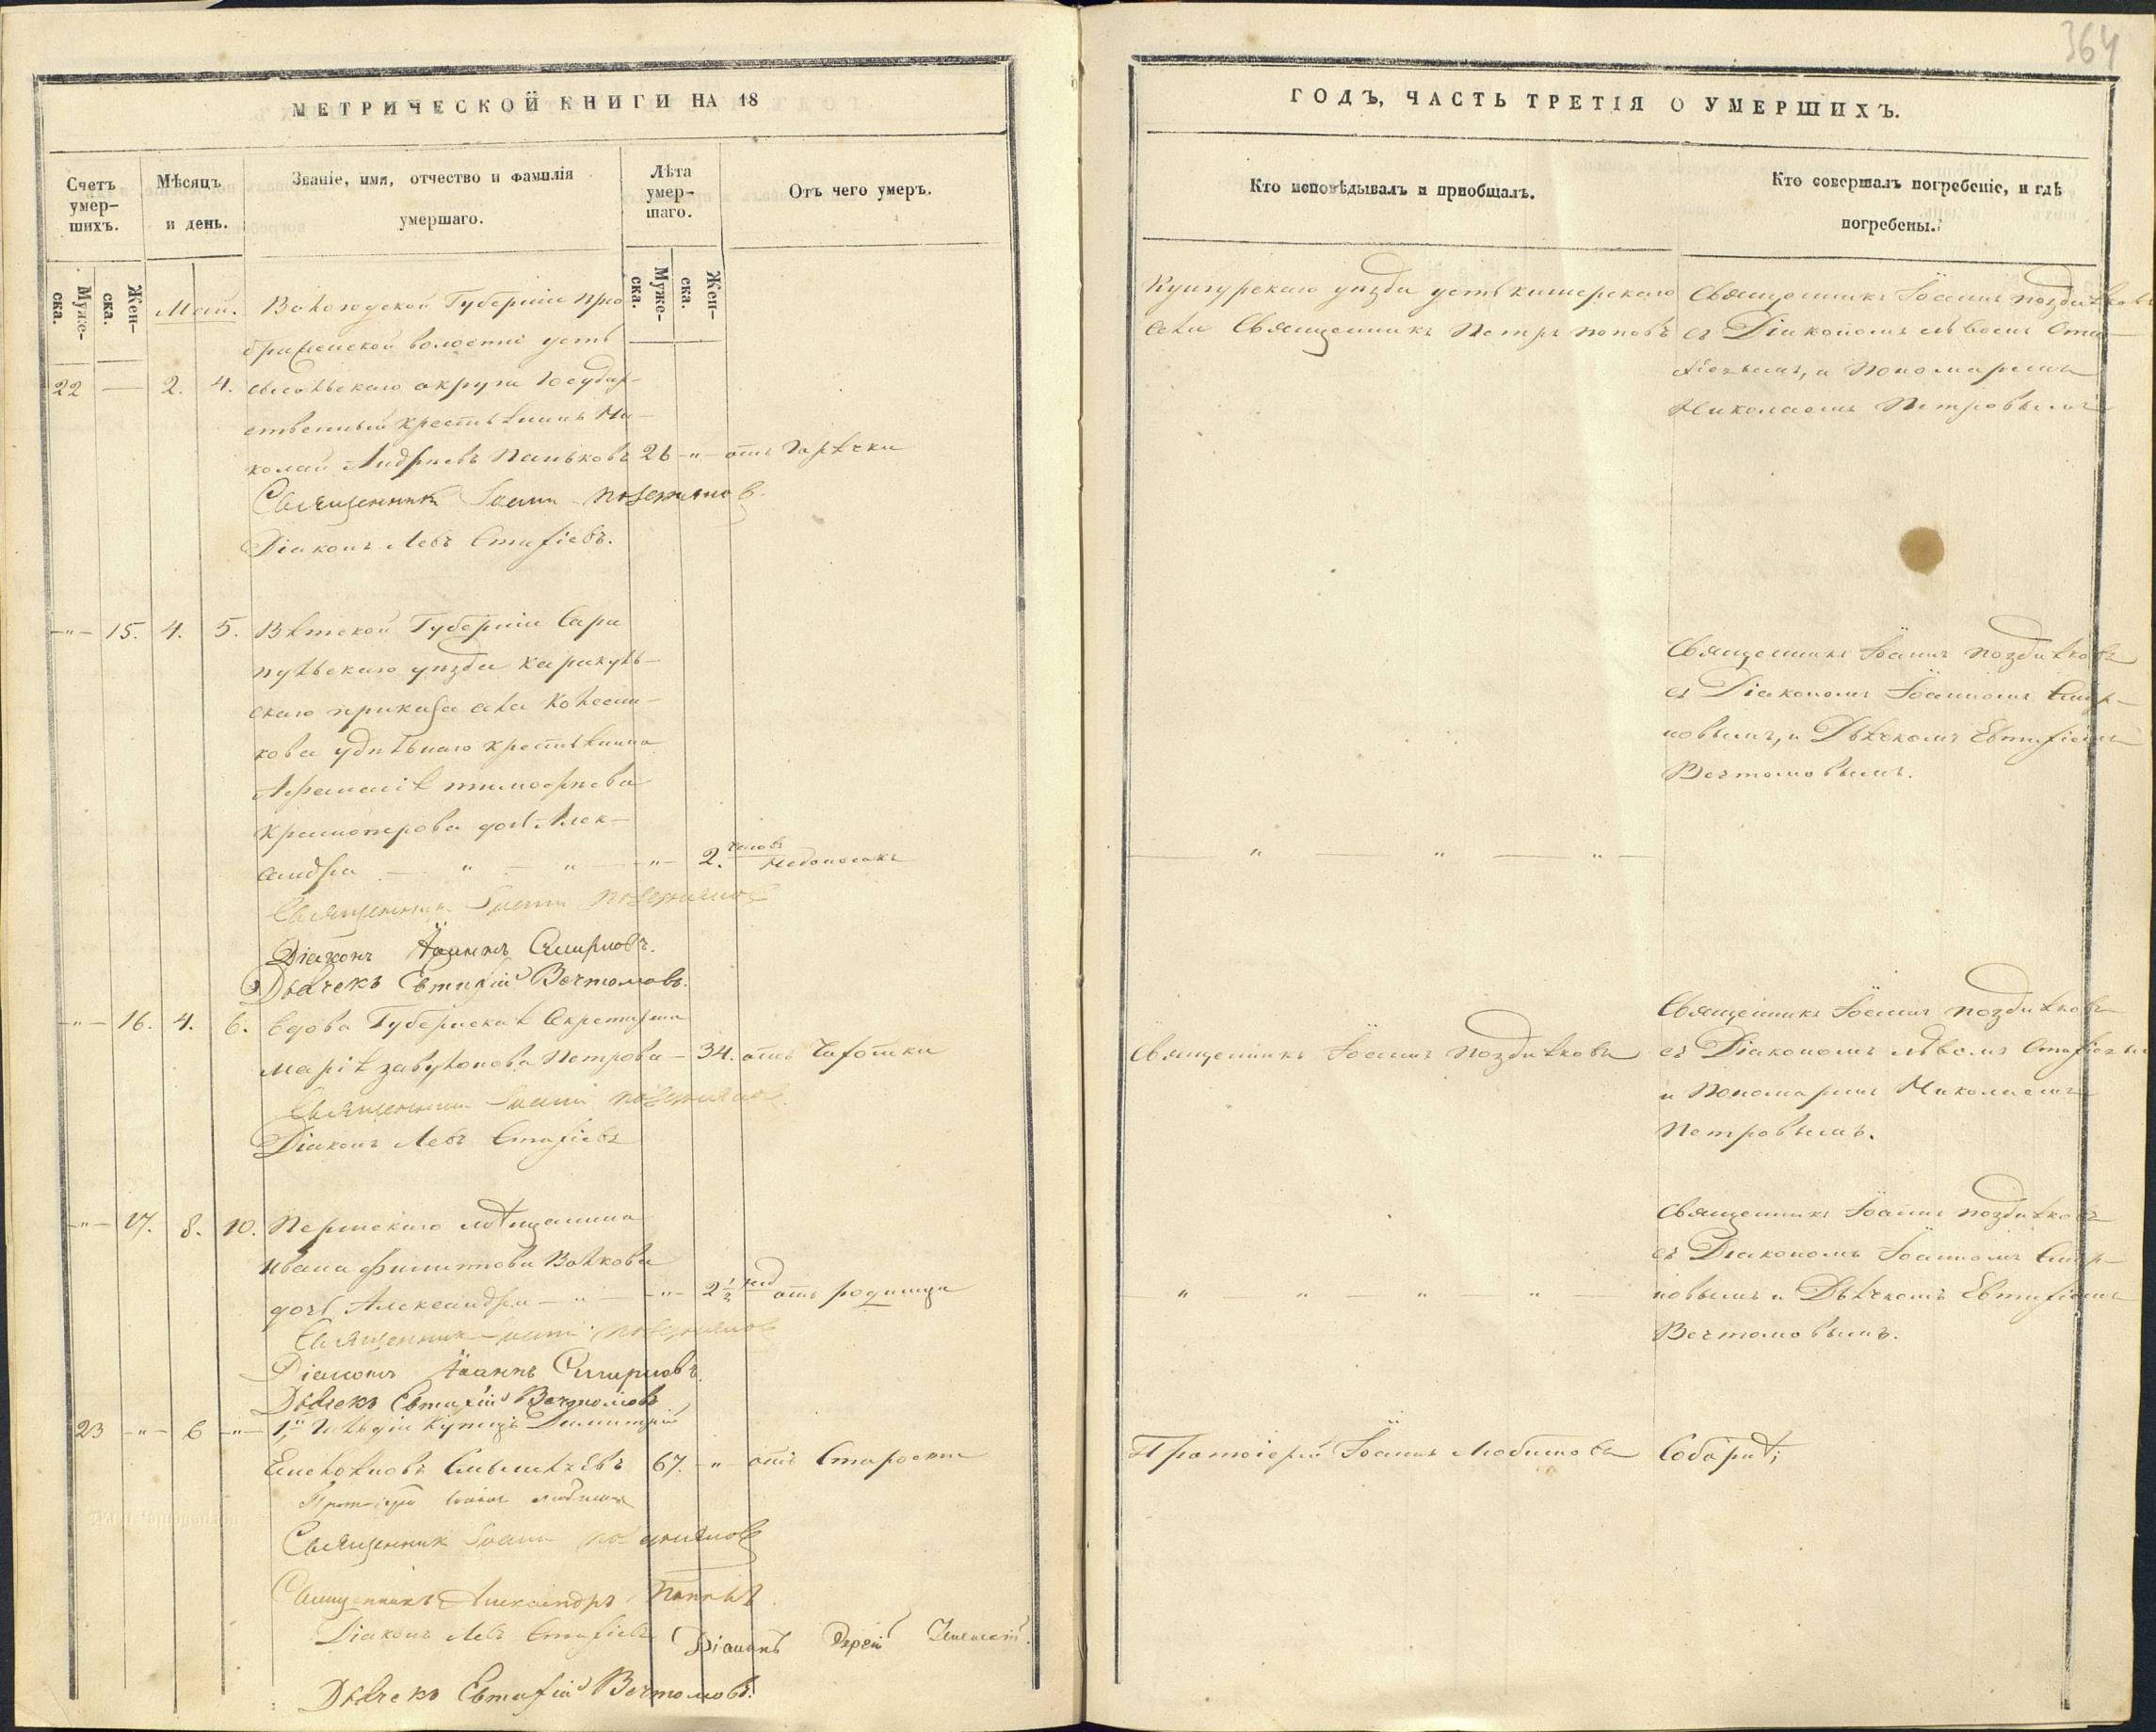 364
МЕТРИЧЕСКОЙ КНИГИ НА 18
Счетъ умер-шихъ.
Муже-ска.
Жен-ска.
Мѣсяцъ и день.
Званіе, имя, отчество и фамилія умершаго.
Лѣта умер-шаго.
Муже-ска.
Жен-ска.
Отъ чего умеръ.
Май.
Вологодской Губерніи Прео
браженской волости усть
22 — 2. 4. сысольскаго округа Государ-
ственный крестьянинъ Ни-
колай Андреевъ Паньковъ 26 -"- отъ Горячки
Священникъ Іоаннъ Поздняковъ
Діаконъ Левъ
-"- 15. 4. 5. Вятской Губерніи Сара
пульскаго уѣзда Каракуль-
скаго приказа села Колесни-
кова удѣльнаго крестьянина
Афанасія Тимофѣева
дочь Алек-
сандра - " - " -"- 2. часовъ Недоносокъ
Священникъ Іоаннъ Поздняковъ
Діаконъ Іоаннъ Смирновъ.
Дьячекъ Евтихій Вечтомовъ.
-"- 16. 4. 6. Вдова Губернская Секретарша
Марія Завулонова Петрова - 34. отъ Чахотки
Священникъ Іоаннъ Поздняковъ
Діаконъ Левъ
-"- 17. 8. 10. Пермскаго мѣщанина
Ивана Филиппова Волкова
дочь Александра - " -"- 2½ нед отъ родимца
Священникъ Іоаннъ Поздняковъ
Діаконъ Іоаннъ Смирновъ.
Дьячекъ Евтихій Вечтомовъ
23 -"- 6 -"- 1й Гильдіи Купецъ Димитрій
Емельяновъ Смышляевъ 67. -"- отъ Старости
Протоіерей Іоаннъ Любимовъ
Священникъ Іоаннъ Поздняковъ
Священникъ Александръ
Діаконъ Левъ
Діаконъ
Дьячекъ Евтихій Вечтомовъ.
ГОДЪ, ЧАСТЬ ТРЕТІЯ О УМЕРШИХЪ.
Кто исповѣдывалъ и пріобщалъ.
Кто совершалъ погребеніе, и гдѣ погребены.
Кунгурскаго уѣзда усть кишерскаго
села Священникъ Петръ Поповъ
Священникъ Іоаннъ Поздняковъ
съ Діакономъ Львомъ
и Пономаремъ
Николаемъ Петровымъ
Священникъ Іоаннъ Поздняковъ
съ Діакономъ Іоанномъ Смир-
новымъ, и Дьячкомъ Евтихіемъ
Вечтомовымъ.
— " — " — " —
Священникъ Іоаннъ Поздняковъ
Священникъ Іоаннъ Поздняковъ
съ Діакономъ Львомъ
и Пономаремъ Николаемъ
Петровымъ.
Священникъ Іоаннъ Поздняковъ
съ Діакономъ Іоанномъ Смир-
— " — " — " — " — новымъ и Дьячкомъ Евтихіемъ
Вечтомовымъ.
Протоіерей Іоаннъ Любимовъ Соборнѣ;